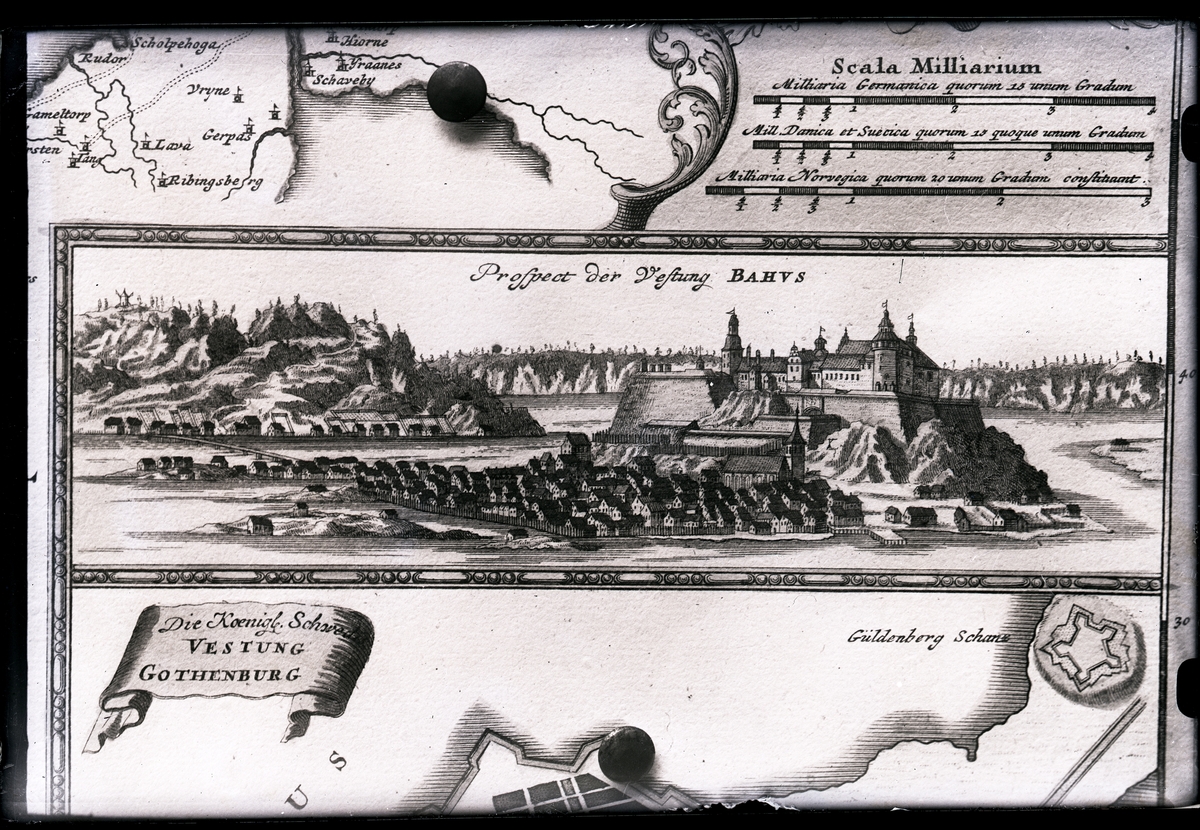 Scholpehoga
Rudor
Hiorne
Graanes
Schaveby
Vryne
Gerpas
Lava
Ribingsberg
Scala Milliarium
Milliaria Germanica quorum 15 unum Gradum
1 2 3 4
Mill. Danica et Suevica quorum 15 quoque unum Gradum
1 2 3 4
Milliaria Norvegica quorum 20 unum Gradum constituunt.
1 2 3
Prospect der Vestung BAHVS
40
Die Kœnigl. Schwed
VESTUNG
GOTHENBURG
Güldenberg Schanz
30
U S